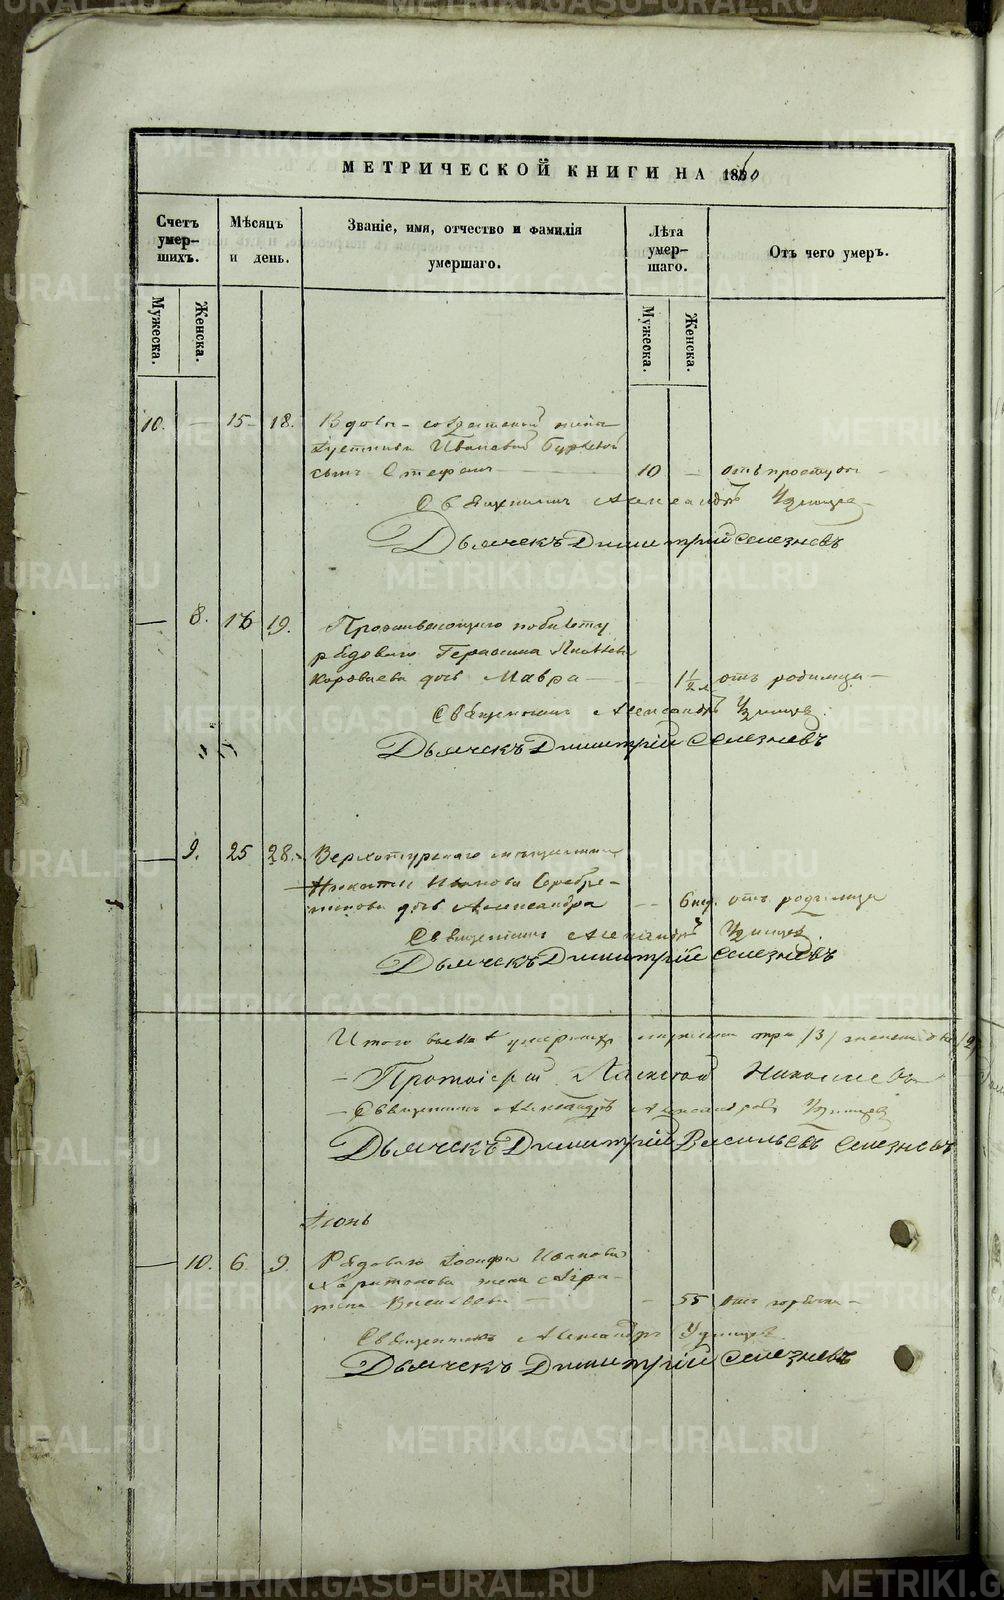 МЕТРИЧЕСКОЙ КНИГИ НА 1860
Счетъ умер- шихъ.
Мѣсяцъ и день.
Званіе, имя, отчество и фамилія умершаго.
Лѣта умер- шаго.
Отъ чего умеръ.
Мужеска.
Женска.
Мужеска.
Женска.
10. — 15 18. Вдовы солдатской жены
Устиньи Ивановой
сынъ Стефанъ — 10 — отъ простуды
Священникъ Александръ Удинцевъ
Дьячекъ Димитрій Селезневъ
— 8. 16 19. Проживающаго по билету
рядоваго Герасима Яковлева
Короваева дочь Мавра — 1 1/2 отъ родимца —
Священникъ Александръ Удинцевъ
Дьячекъ Димитрій Селезневъ
— 9. 25 28. Верхотурскаго мѣщанина
Никиты Иванова Серебре-
никова дочь Александра — 6 нед. отъ родимца
Священникъ Александръ Удинцевъ
Дьячекъ Димитрій Селезневъ
Итого въ маѣ умершихъ мужеска три /3/ женска два /2/
Протоіерей Алексѣй Николаевъ
Священникъ Александръ Александровъ Удинцевъ
Дьячекъ Димитрій Васильевъ Селезневъ
Іюнь
— 10. 6. 9. Рядоваго Іосифа Иванова
Харитонова жена
Васильева — 55 отъ горячки —
Священникъ Александръ Удинцевъ
Дьячекъ Димитрій Селезневъ
METRIKI.GASO-URAL.RU